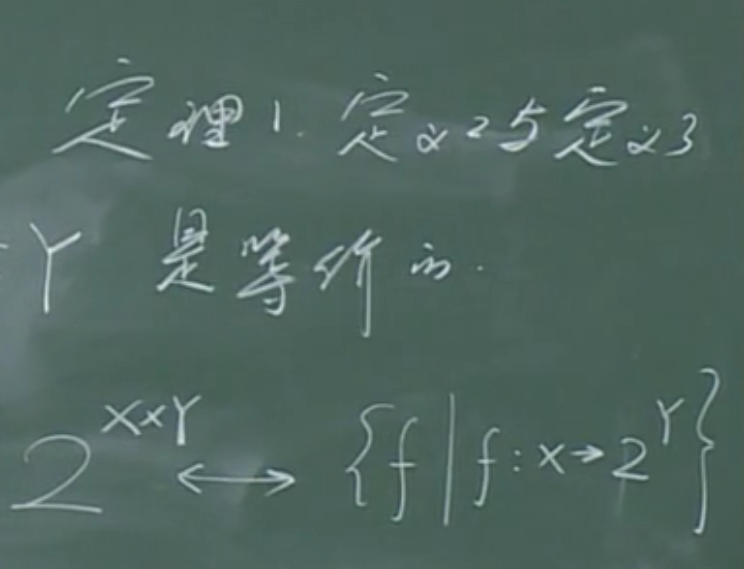 定理1. 定义2与定义3
Y 是等价的.
2^{X×Y} ↔ {f | f: X→2^Y}